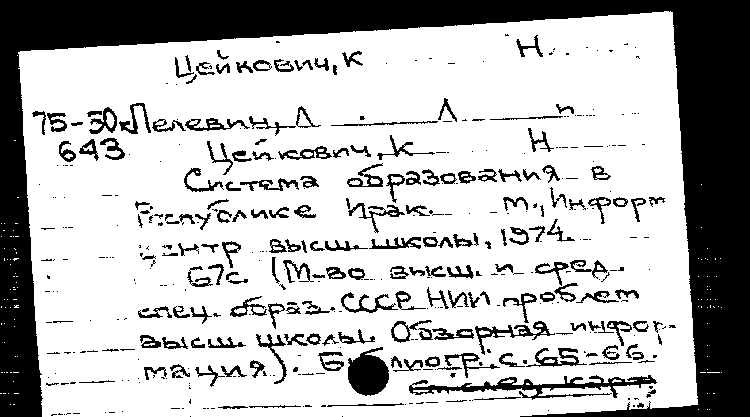 Цейкович, К Н
75-30к Пелевин, Л. Л п
643 Цейкович, К Н
Система образования в
Республике Ирак. М., Информ
центр высш. школы, 1974.
67с. (М-во высш. и сред.
спец. образ. СССР НИИ проблем
высш. школы. Обзорная инфор-
мация). Библиогр.: с. 65-66.
См. след. карт.